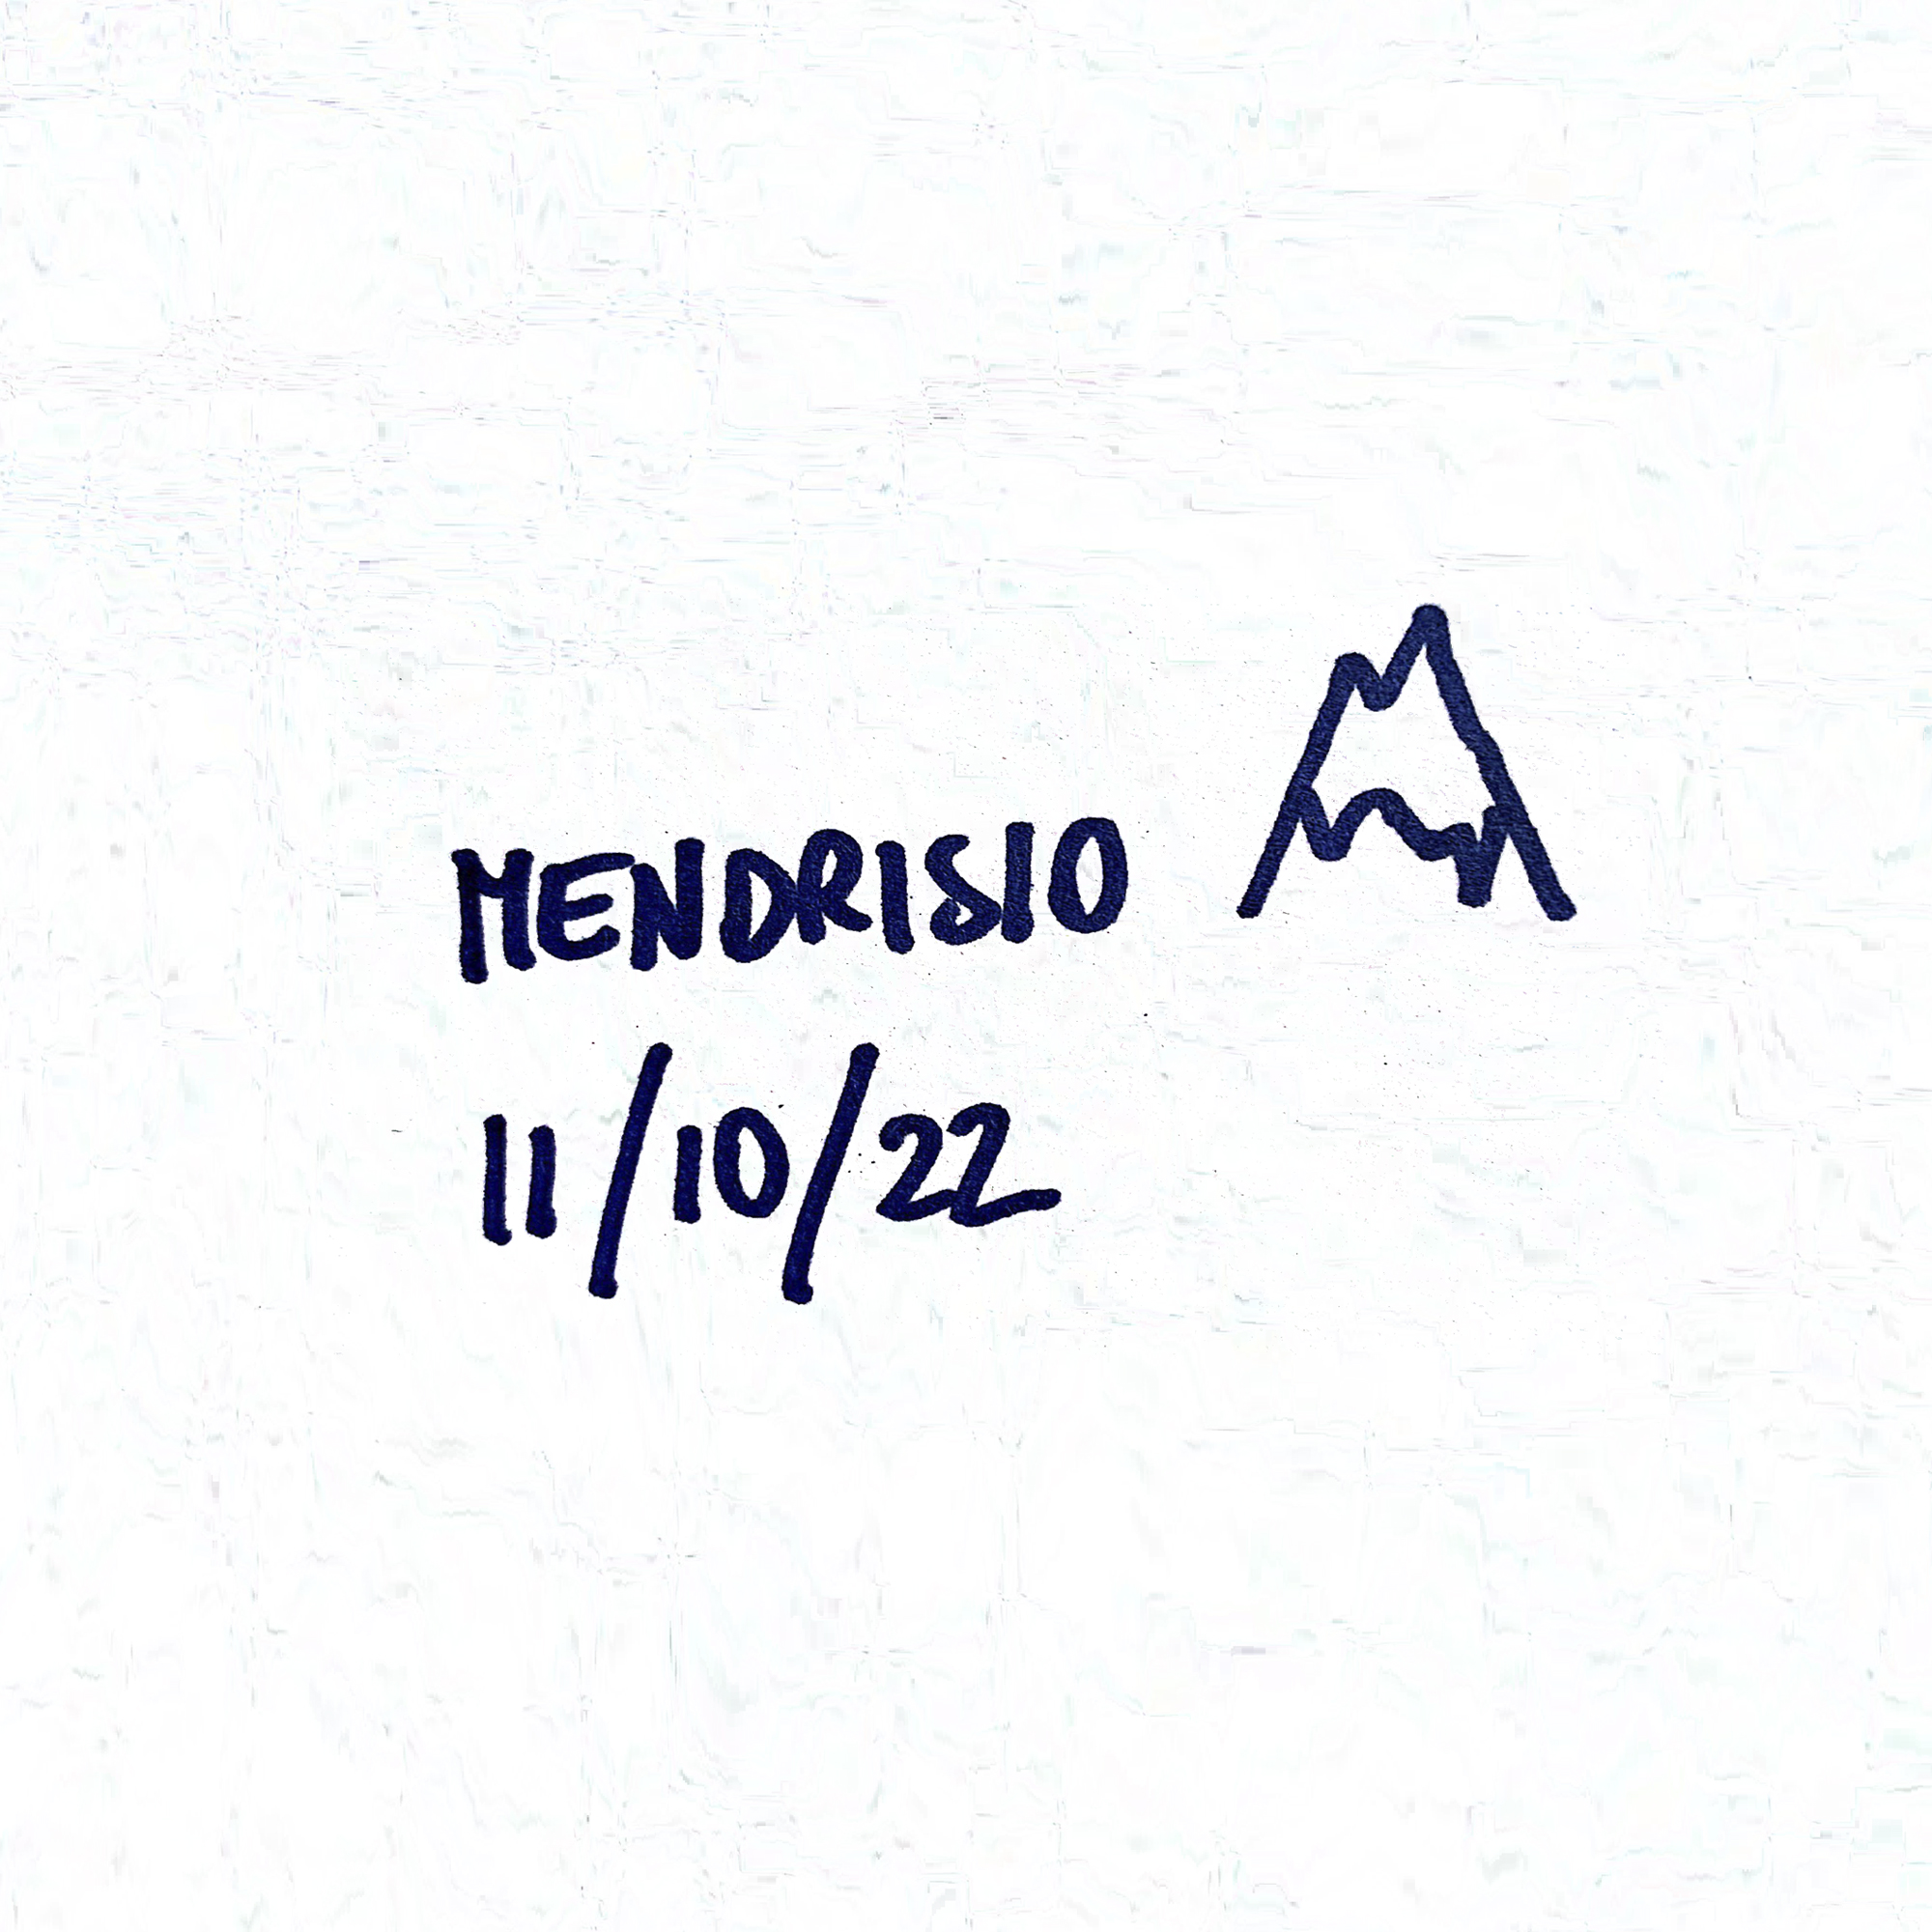 MENDRISIO
11/10/22